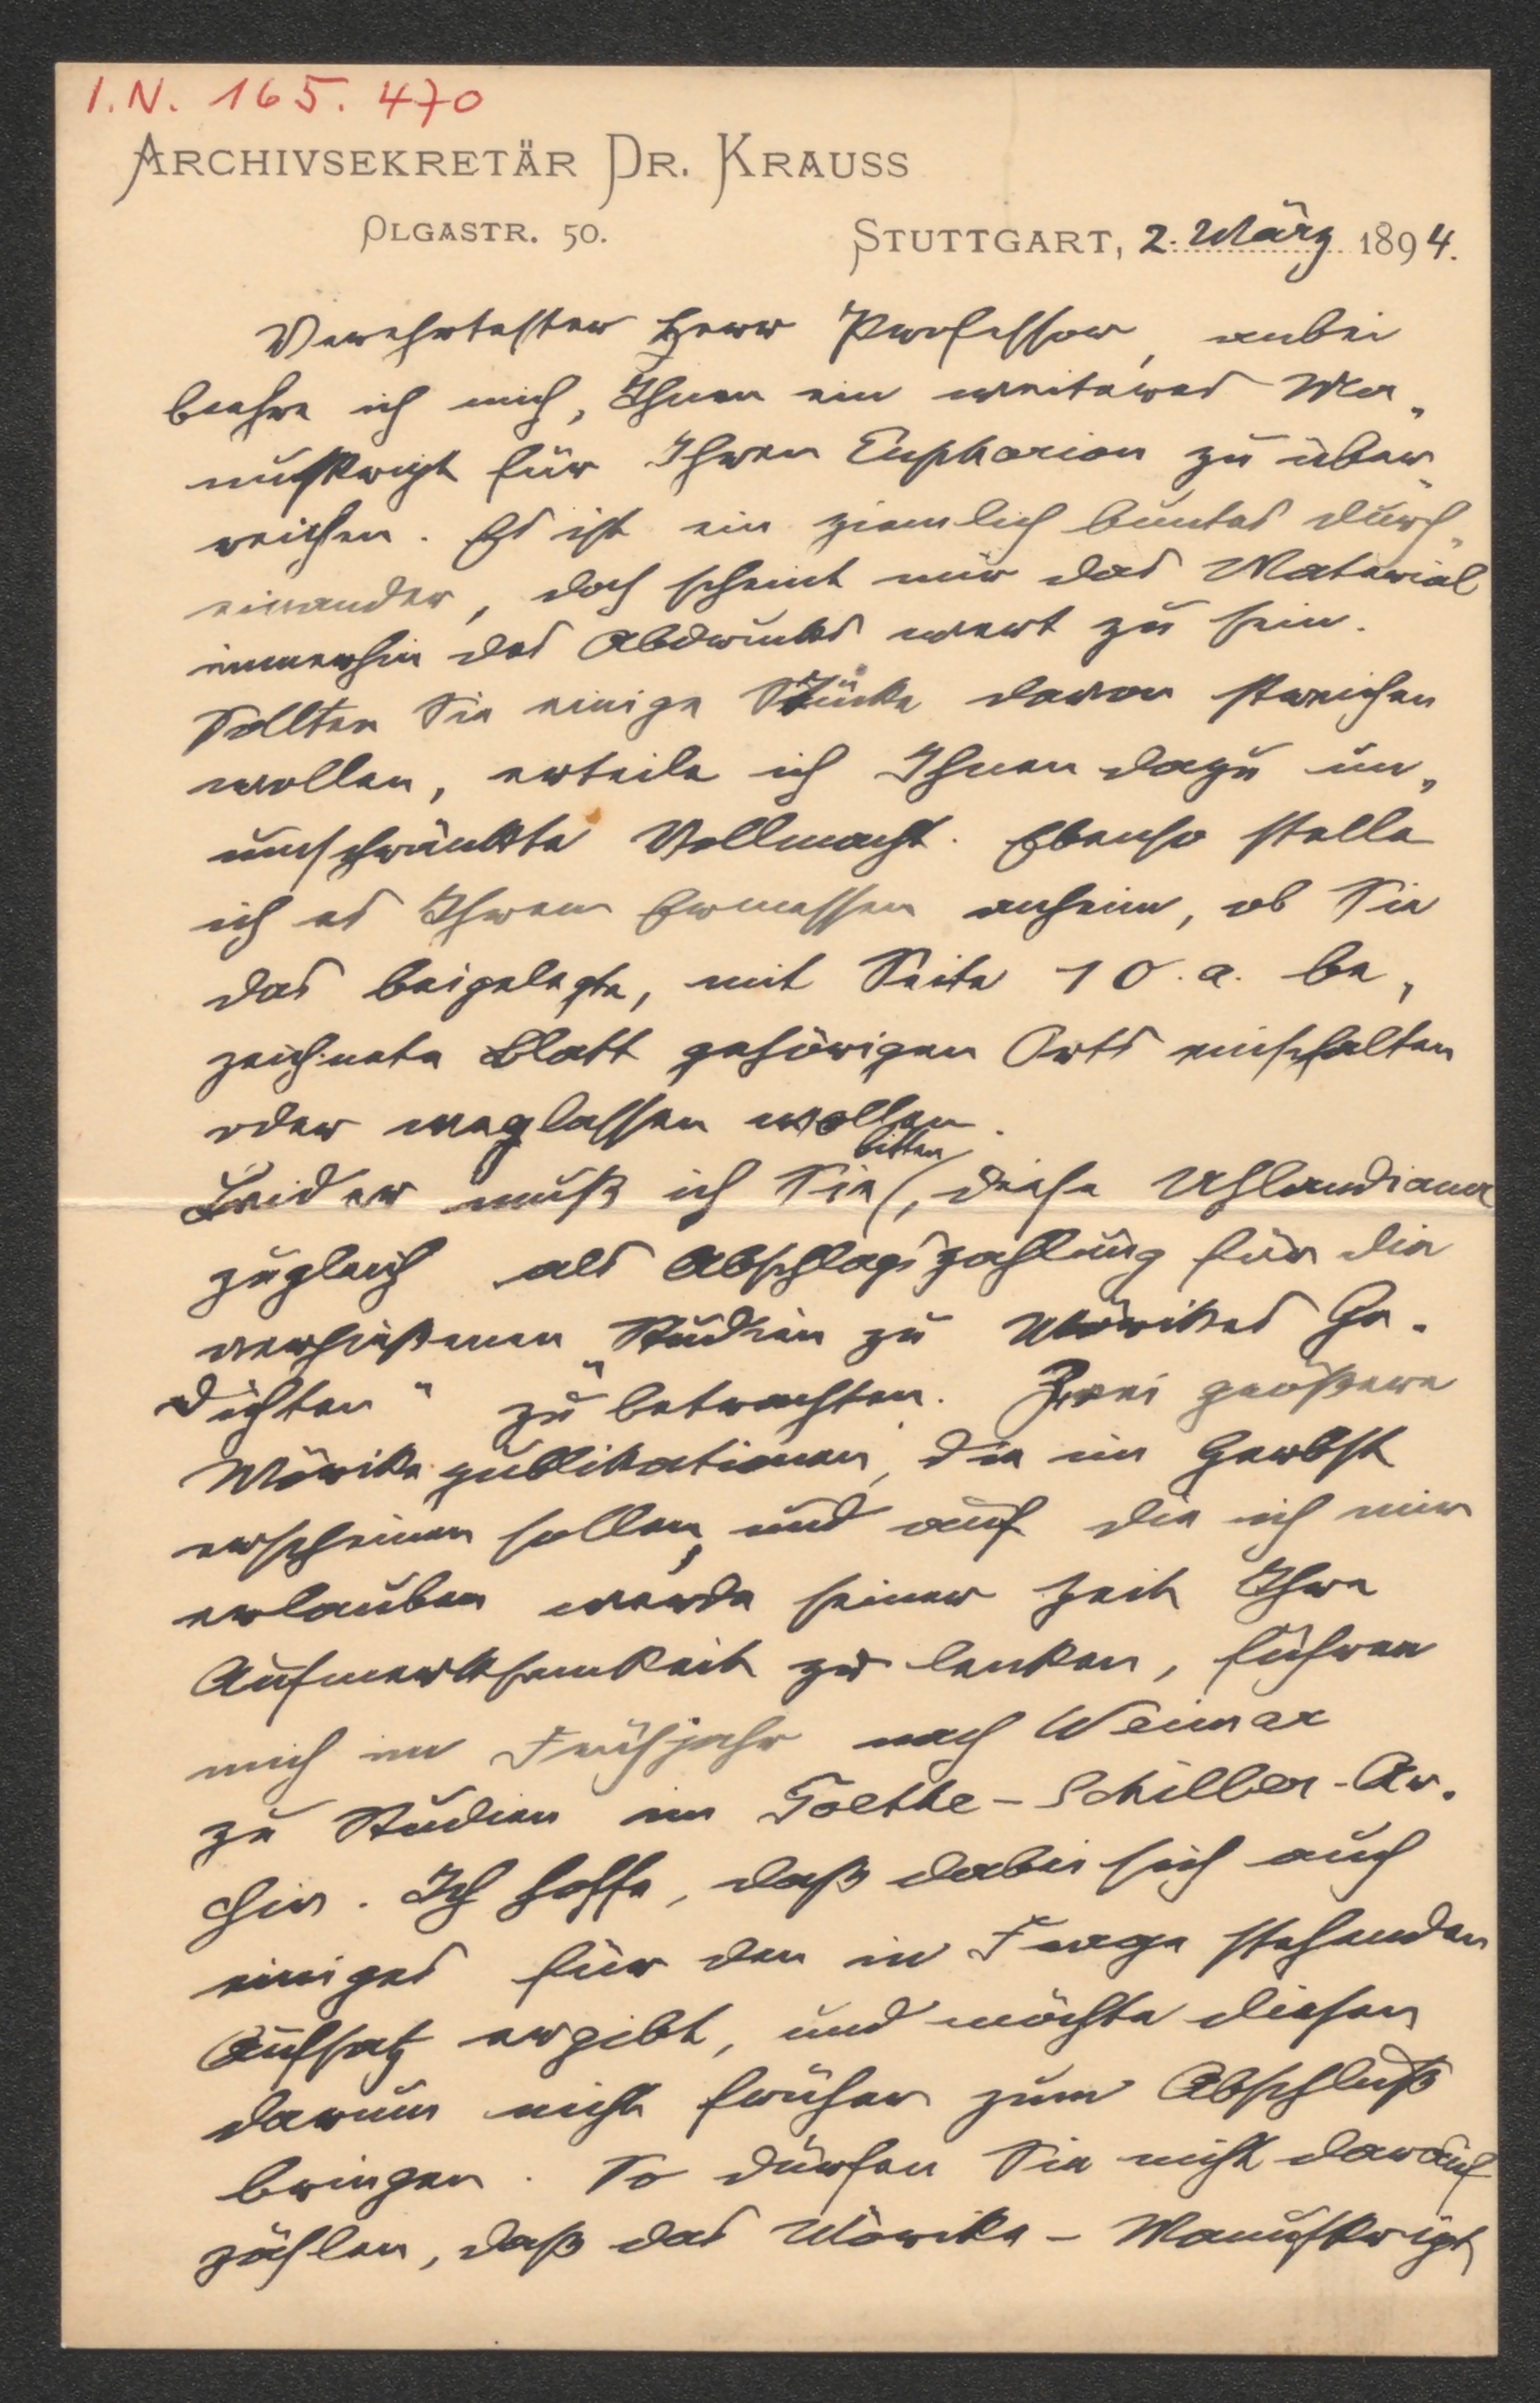 I.N. 165.470
ARCHIVSEKRETÄR DR. KRAUSS
OLGASTR. 50.
STUTTGART, 2. März 1894.
Verehrtester Herr Professor, anbei
beehre ich mich, Ihnen ein weiteres Ma„
nuskript für Ihren Euphorion zu über„
reichen. Es ist ein ziemlich buntes Durch„
einander, doch scheint mir das Material
immerhin des Abdrucks wert zu sein.
Sollten Sie einige Stücke davon streichen
wollen, erteile ich Ihnen dazu un„
umschränkte Vollmacht. Ebenso stelle
ich es Ihrem Ermessen anheim, ob Sie
das beigelegte, mit Seite 10.a. be„
zeichnete Blatt gehörigen Orts einschalten
oder weglassen wollen.
Leider muß ich Sie bitten, diese Uhlandiana
zugleich als Abschlagszahlung für die
verheißenen „Studien zu Mörikes Ge-
dichten“ zu betrachten. Zwei größere
Mörikepublikationen, die im Herbst
erscheinen sollen, und auf die ich mir
erlauben werde seiner Zeit Ihre
Aufmerksamkeit zu lenken, führen
mich im Frühjahr nach Weimar
zu Studien im Goethe-Schiller-Ar-
chiv. Ich hoffe, daß dabei sich auch
einiges für den in Frage stehenden
Aufsatz ergibt, und möchte diesen
darum nicht früher zum Abschluß
bringen. So dürfen Sie nicht darauf
zählen, daß das Mörike-Manuskript